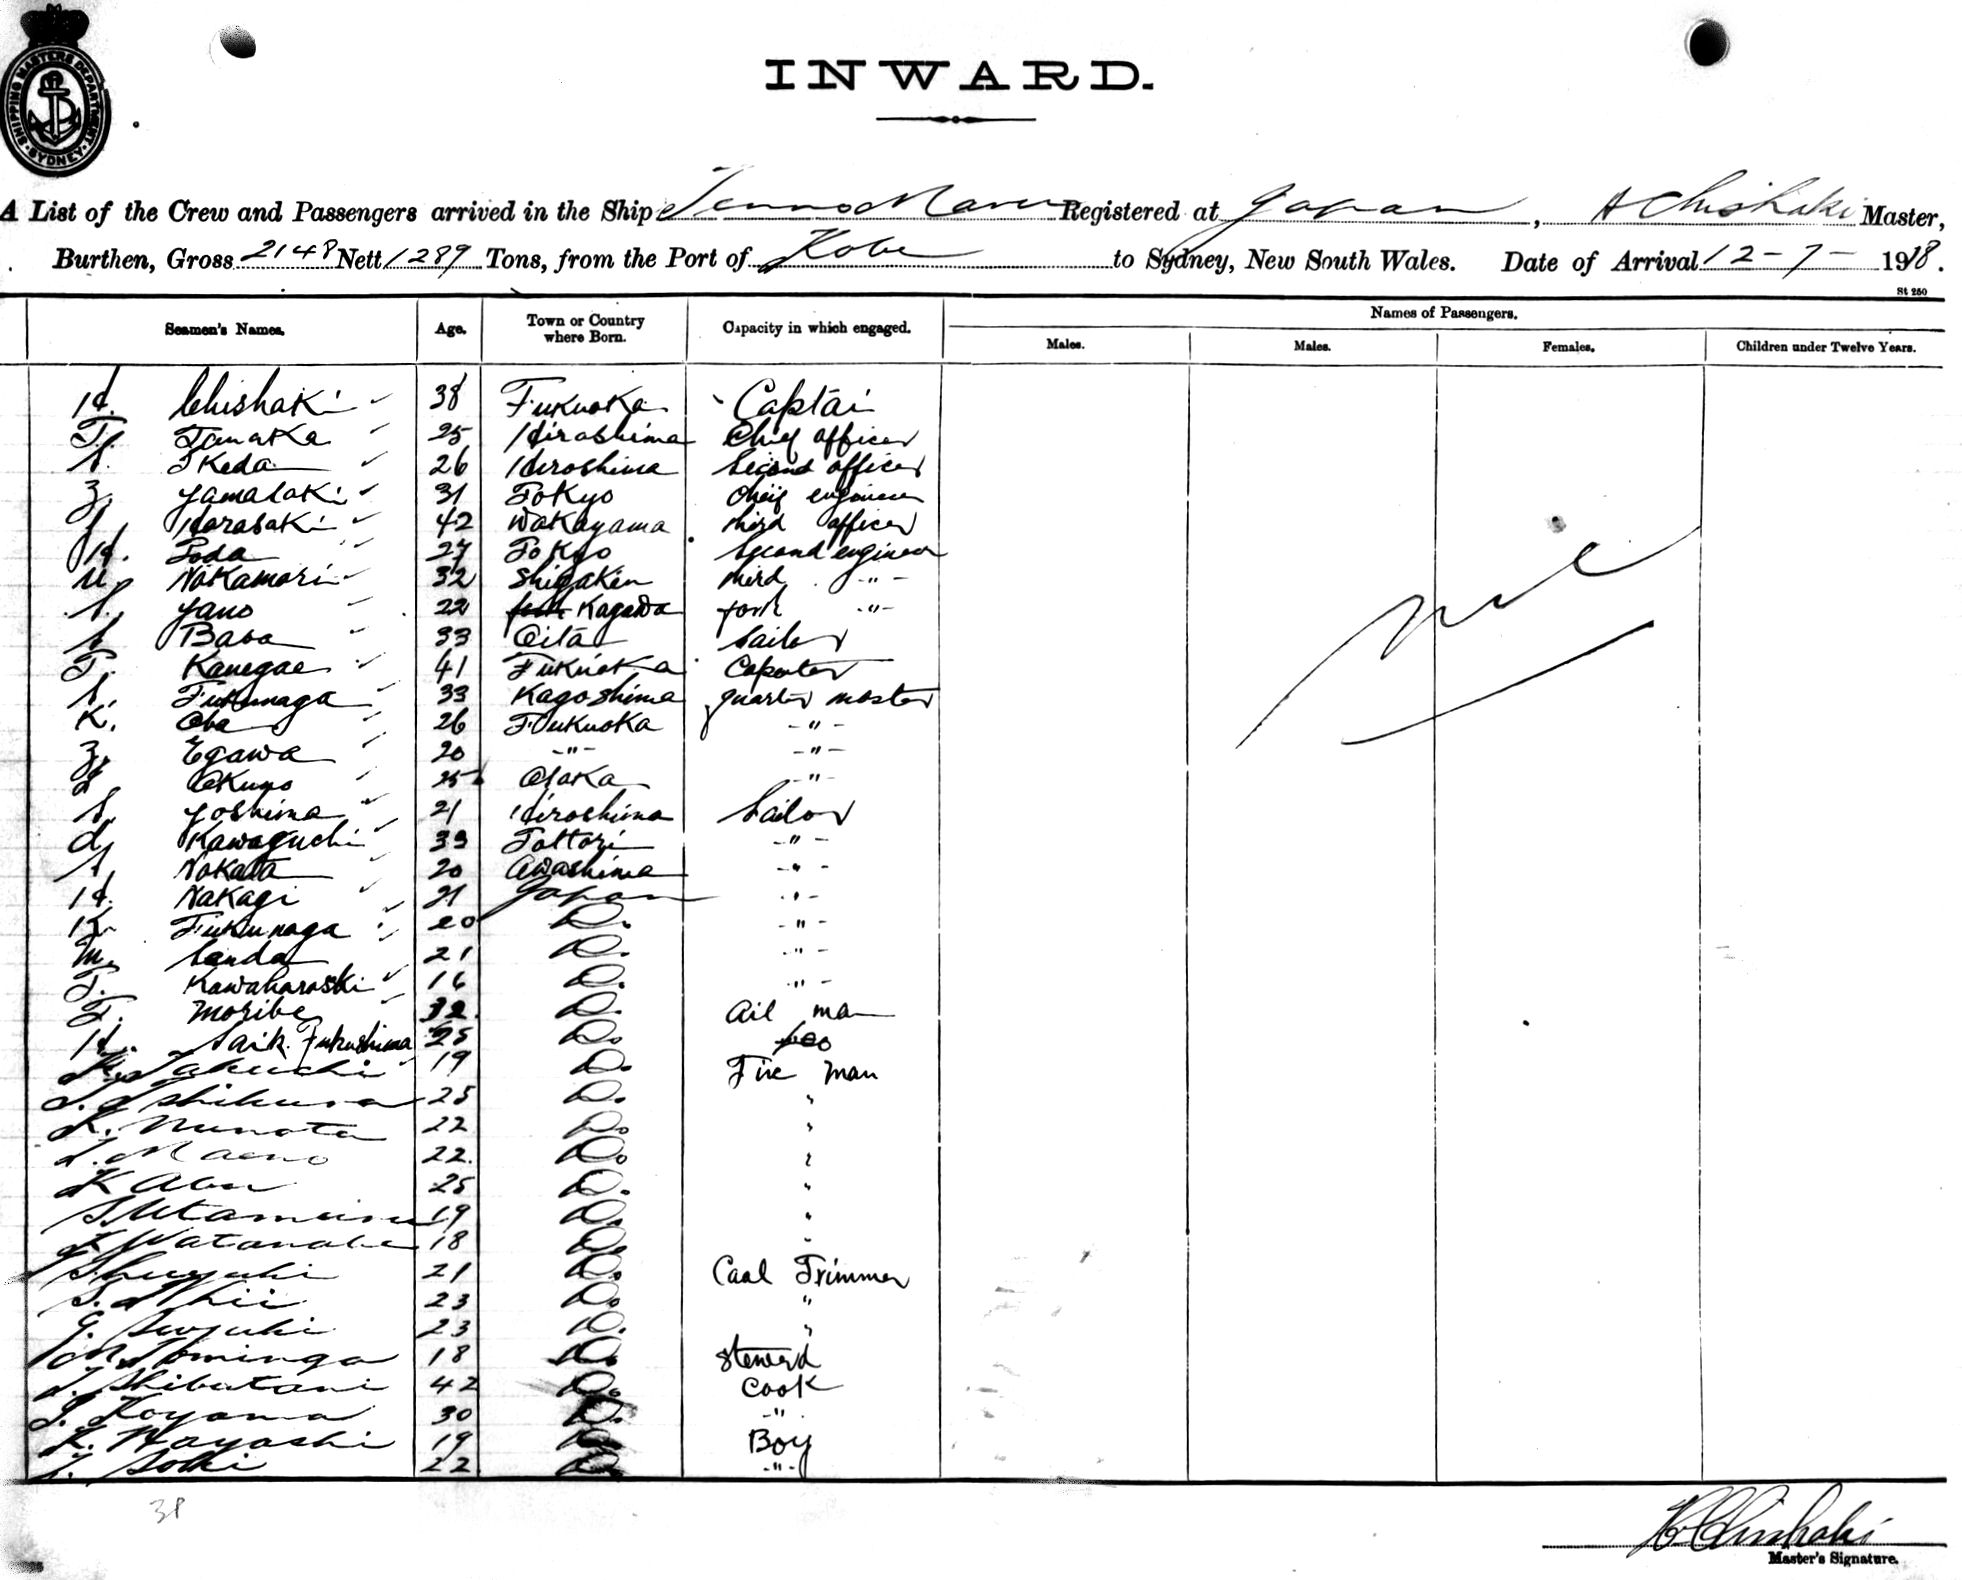 SHIPPING MASTERS DEPARTMENT SYDNEY
INWARD.
A List of the Crew and Passengers arrived in the Ship Tenno Maru Registered at Japan, H Chishaki Master,
Burthen, Gross 2148 Nett 1289 Tons, from the Port of Kobe to Sydney, New South Wales. Date of Arrival 12-7-1918.
St 250
Seamen's Names. Age. Town or Country where Born. Capacity in which engaged. Names of Passengers.
Males. Males. Females. Children under Twelve Years.
H. Chishaki 38 Fukuoka Captai
T. Tanaka 25 Hiroshima Chief officer
S. Ikeda 26 Hiroshima Second officer
Z. Yamasaki 31 Tokyo Cheif engineer
Harasaki 42 Wakayama third officer
H. Toda 27 Tokyo Second engineer
U. Nakamori 32 Shigaken third -"-
S. Yano 22 Kagawa forth -"-
S. Baba 33 Oita Sailor
T. Kanegae 41 Fukuoka Capenter
S. Fukunaga 33 Kagoshima quarter master
K. Oba 26 Fukuoka -"-
Z. Egawa 20 -"- -"-
Okuno 25 Osaka -"-
S. Yoshima 21 Hiroshima Sailor
Kawaguchi 33 Tottori -"-
S. Nakata 20 Awashima -"-
H. Nakagi 21 Japan -"-
K. Fukunaga 20 Do. -"-
M. Sanda 21 Do. -"-
T. Kawaharaski 16 Do. -"-
T. Moribe 32 Do. Oil man
H. Saik. Fukushima 25 Do.
K. Takuchi 19 Do. Fire man
S. Ishikura 25 Do. "
K. Nunota 22 Do. "
Maeno 22. Do. "
K Abu 25 Do. "
S Utamura 19 Do. "
Watanabe 18 Do. "
S. 21 Do. Coal Trimmer
S. Ishii 23 Do. "
G. Suzuki 23 Do. "
M. Tominga 18 Do. Steward
Shibutani 42 Do. Cook
Koyama 30 Do. -"-
K. Hayashi 19 Do. Boy
22 Do. -"-
nil
38
H. Chishaki
Master's Signature.